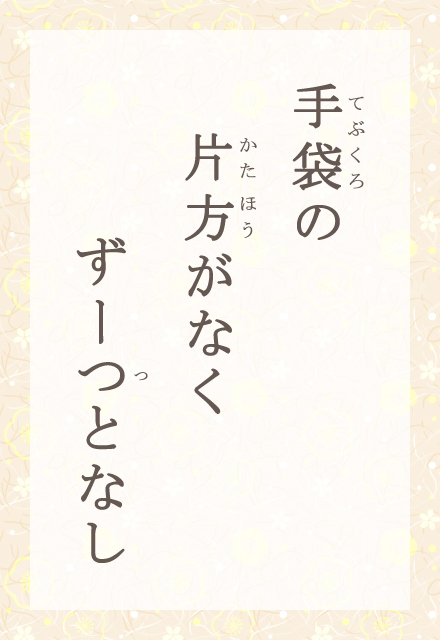 手袋の
てぶくろ
片方がなく
かたほう
ずーつとなし
っ